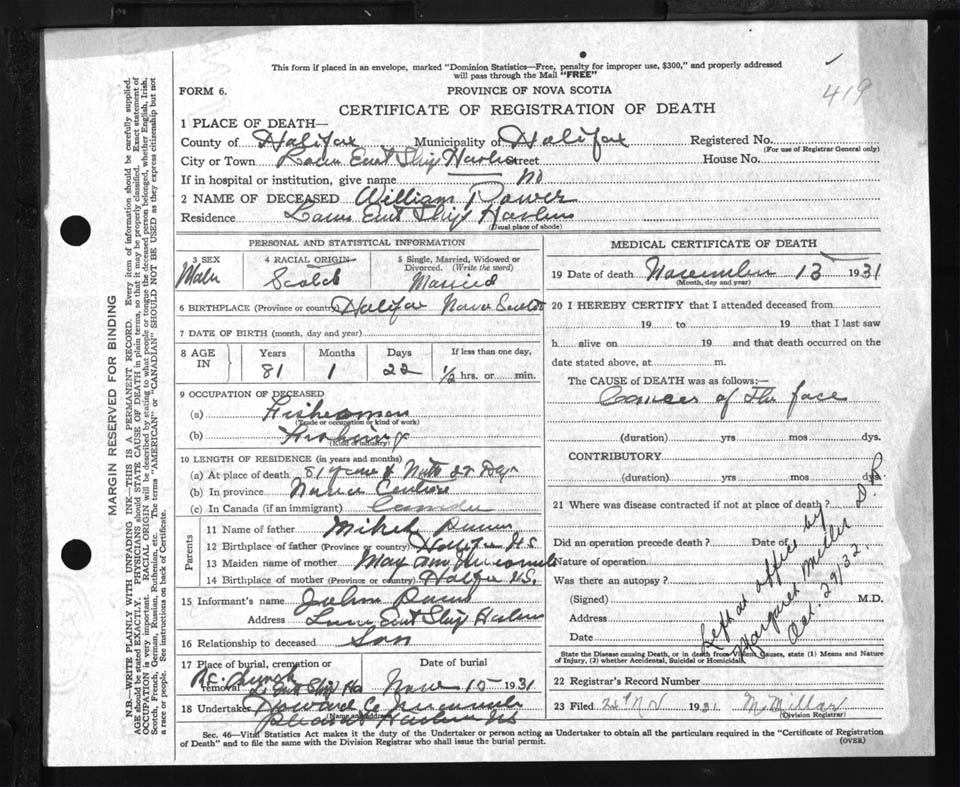 This form if placed in an envelope, marked "Dominion Statistics—Free, penalty for improper use, $300," and properly addressed
will pass through the Mail "FREE"
419
FORM 6. PROVINCE OF NOVA SCOTIA
CERTIFICATE OF REGISTRATION OF DEATH
1 PLACE OF DEATH—
County of Halifax Municipality of Halifax Registered No.
(For use of Registrar General only)
City or Town East Ship Harbor Street House No.
If in hospital or institution, give name no
2 NAME OF DECEASED William Power
Residence East Ship Harbor
(Usual place of abode)
PERSONAL AND STATISTICAL INFORMATION
3 SEX 4 RACIAL ORIGIN 5 Single, Married, Widowed or
Divorced. (Write the word)
Male Scotch Married
6 BIRTHPLACE (Province or country) Halifax Nova Scotia
7 DATE OF BIRTH (month, day and year)
8 AGE IN Years Months Days If less than one day,
81 1 22 1/2 hrs. or min.
9 OCCUPATION OF DECEASED
(a) Fisherman
(Trade or occupation or kind of work)
(b) Fishing
(Kind of industry)
10 LENGTH OF RESIDENCE (in years and months)
(a) At place of death 81 years 22 Days
(b) In province Nova Scotia
(c) In Canada (if an immigrant) Canada
Parents
11 Name of father
12 Birthplace of father (Province or country) Halifax N.S.
13 Maiden name of mother May Ann
14 Birthplace of mother (Province or country) Halifax N.S.
15 Informant's name John Power
Address East Ship Harbor
16 Relationship to deceased Son
17 Place of burial, cremation or removal Date of burial
R.C. Church East Ship Nov 15 1931
18 Undertaker Howard
(Name and address)
Harbor N.S.
MEDICAL CERTIFICATE OF DEATH
19 Date of death November 13 1931
(Month, day and year)
20 I HEREBY CERTIFY that I attended deceased from
19 to 19 that I last saw
h alive on 19 and that death occurred on the
date stated above, at m.
The CAUSE of DEATH was as follows:—
Cancer of the face
(duration) yrs mos dys.
CONTRIBUTORY
(duration) yrs mos dys.
21 Where was disease contracted if not at place of death?
Did an operation precede death? Date of
Nature of operation
Was there an autopsy?
(Signed) M.D.
Address
Date
Left at office by
Margaret Miller D.R.
Oct. 29/32.
State the Disease causing Death, or in death from Violent Causes, state (1) Means and Nature
of Injury, (2) whether Accidental, Suicidal or Homicidal.
22 Registrar's Record Number
23 Filed 1931 M. Millar
(Division Registrar)
Sec. 46—Vital Statistics Act makes it the duty of the Undertaker or person acting as Undertaker to obtain all the particulars required in the "Certificate of Registration
of Death" and to file the same with the Division Registrar who shall issue the burial permit. (OVER)
MARGIN RESERVED FOR BINDING
N.B.—WRITE PLAINLY WITH UNFADING INK—THIS IS A PERMANENT RECORD. Every item of information should be carefully supplied.
AGE should be stated EXACTLY. PHYSICIANS should STATE CAUSE OF DEATH in plain terms, so that it may be properly classified. Exact statement of
OCCUPATION is very important. RACIAL ORIGIN will be described by stating to what people or tongue the deceased person belonged, whether English, Irish,
Scotch, French, German, Russian, Ruthenian, etc. The terms "AMERICAN" or "CANADIAN" SHOULD NOT BE USED as they express citizenship but not
a race or people. See instructions on back of Certificate.